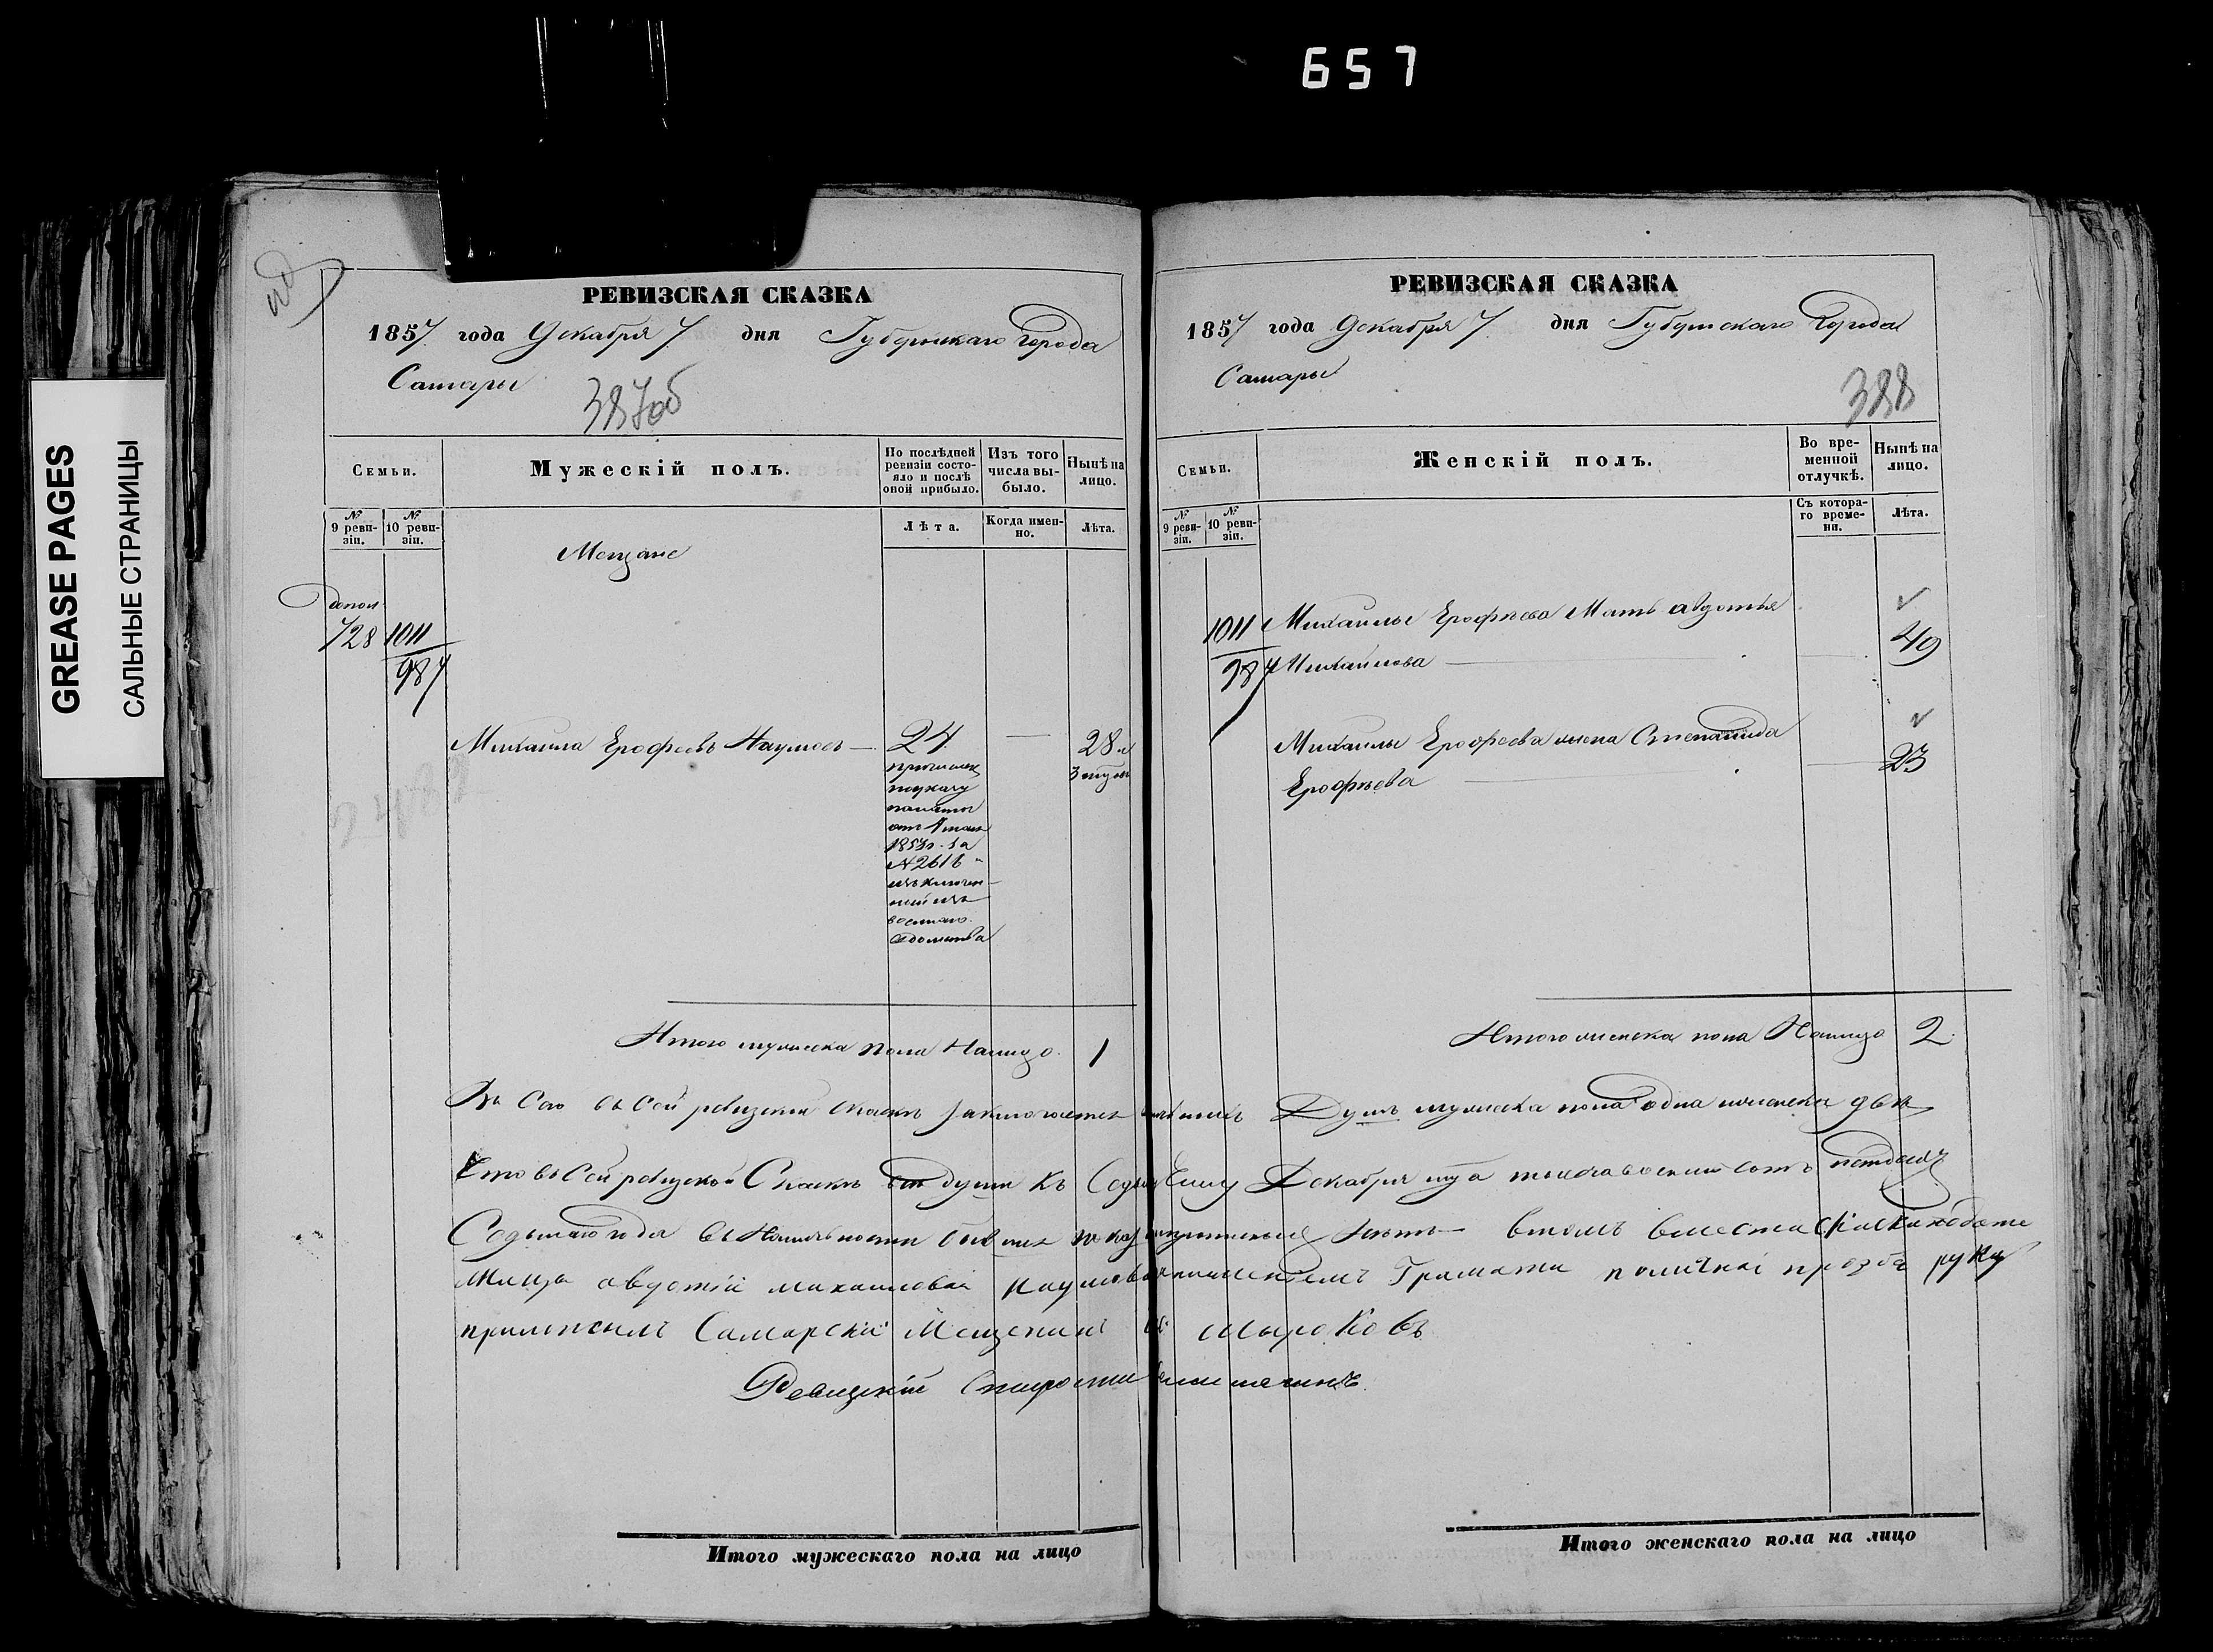 657
GREASE PAGES
САЛЬНЫЕ СТРАНИЦЫ
РЕВИЗСКАЯ СКАЗКА
1857 года Декабря 7 дня Губернскаго Города
Самары
387об
Семьи.
Мужескій полъ.
По послѣдней ревизіи состояло и послѣ оной прибыло.
Изъ того числа выбыло.
Нынѣ на лицо.
№ 9 ревизіи.
№ 10 ревизіи.
Лѣта.
Когда именно.
Лѣта.
Мещане
допол
728
1011
987
Михаила Ерофеевъ Наумовъ — 24 — 28
по указу
палаты
от
№ 2616
исключен
ный изъ
военнаго
ведомства
Итого мужеска пола Налицо 1
РЕВИЗСКАЯ СКАЗКА
1857 года Декабря 7 дня Губернскаго Города
Самары
388
Семьи.
Женскій полъ.
Во временной отлучкѣ.
Нынѣ на лицо.
№ 9 ревизіи.
№ 10 ревизіи.
Съ котораго времени.
Лѣта.
1011
987
Михаилы Ерофѣева Мать авдотья
Михайлова — 49
Михаилы Ерофеева жена Степанида
Ерофѣева — 23
Итого женска пола Налицо 2
въ сей ревизской сказкѣ заключается Душъ мужеска пола одна женска двѣ
Что въ сей ревизской Сказкѣ души къ Седьмому Декабря тысяча восемьсотъ пятдесятъ
Седьмаго года въ наличности нѣтъ — втомъ вместа
авдотьи михаиловай наумовай Граматы прозба руку
приложилъ Самарскій Мещенинъ
Ревизскій Староста
Итого мужескаго пола на лицо
Итого женскаго пола на лицо